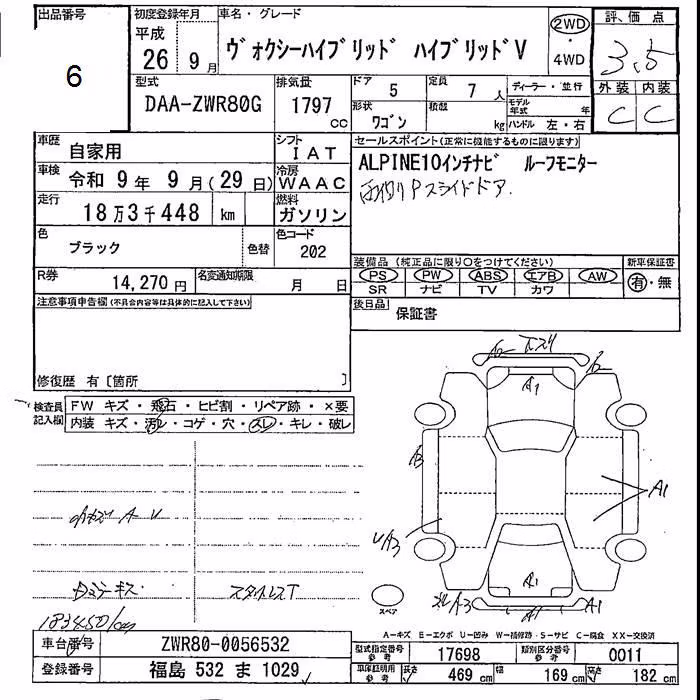 出品番号
6
初度登録年月
平成
26 9月
車名・グレード
ヴォクシーハイブリッド ハイブリッドV
2WD
・
4WD
評価点
3.5
外装 内装
C C
型式
DAA-ZWR80G
排気量
1797
cc
ドア 5
定員 7人
形状 ワゴン
積載 kg
ディーラー・並行
モデル年式 年
ハンドル 左・右
車歴
自家用
シフト
IAT
車検
令和 9年 9月(29日)
冷房
WAAC
走行
18万3千448 km
燃料
ガソリン
色
ブラック
色替
色コード
202
R券
14,270円
名変通知期限
月 日
セールスポイント(正常に機能するものに限ります)
ALPINE10インチナビ ルーフモニター
スライドドア
装備品(純正品に限り○をつけてください)
PS PW ABS エアB AW
SR ナビ TV カワ
新車保証書
有・無
後日品
保証書
注意事項申告欄(不具合内容等は具体的に記入して下さい)
修復歴 有〔箇所 〕
検査員記入欄
FW キズ・飛石・ヒビ割・リペア跡・×要
内装 キズ・汚レ・コゲ・穴・スレ・キレ・破レ
A1
A1
A3
A1
A3
A1
スペア
183450km
A－キズ E－エクボ U－凹み W－補修跡 S－サビ C－腐食 XX－交換済
車台番号
ZWR80-0056532
登録番号
福島 532 ま 1029
型式指定番号 参考
17698
類別区分番号 参考
0011
車庫証明用 参考
長さ 469 cm
幅 169 cm
高さ 182 cm